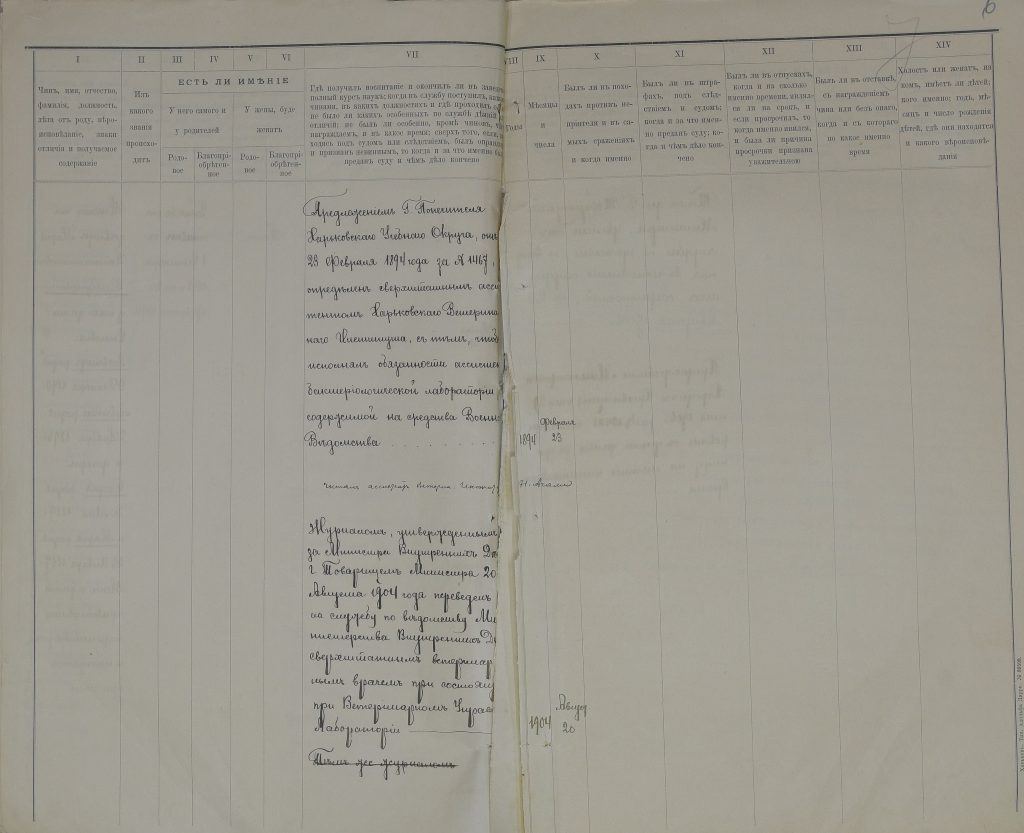 6
7
I
II
III
IV
V
VI
VII
VIII
IX
X
XI
XII
XIII
XIV
Чинъ, имя, отчество,
фамилія, должность,
лѣта отъ роду, вѣро-
исповѣданіе, знаки
отличія и получаемое
содержаніе
Изъ
какого
званія
происхо-
дитъ
ЕСТЬ ЛИ ИМѢНІЕ
У него самого и
у родителей
У жены, буде
женатъ
Родо-
вое
Благопрі-
обрѣтен-
ное
Родо-
вое
Благопрі-
обрѣтен-
ное
Гдѣ получилъ воспитаніе и окончилъ ли въ завед
полный курсъ наукъ; когда въ службу поступилъ, какими
чинами, въ какихъ должностяхъ и гдѣ проходилъ
не было ли какихъ особенныхъ по службѣ дѣяній
отличій; не былъ ли особенно, кромѣ чиновъ,
награждаемъ, и въ какое время; сверхъ того, если
ходясь подъ судомъ или слѣдствіемъ, былъ оправд
и признанъ невиннымъ, то когда и за что именно бы
преданъ суду и чѣмъ дѣло кончено
Годы
Мѣсяцы
и
числа
Былъ ли въ похо-
дахъ противъ не-
пріятеля и въ са-
мыхъ сраженіяхъ
и когда именно
Былъ ли въ штра-
фахъ, подъ слѣд-
ствіемъ и судомъ;
когда и за что имен-
но преданъ суду; ко-
гда и чѣмъ дѣло кон-
чено
Былъ ли въ отпускахъ,
когда и на сколько
именно времени; являл-
ся ли на срокъ, и
если просрочилъ, то
когда именно явился,
и была ли причина
просрочки признана
уважительною
Былъ ли въ отставкѣ,
съ награжденіемъ
чина или безъ онаго,
когда и съ котораго
по какое именно
время
Холостъ или женатъ, на
комъ, имѣетъ ли дѣтей,
кого именно; годъ, мѣ-
сяцъ и число рожденія
дѣтей, гдѣ они находятся
и какого вѣроисповѣ-
данія
Предложеніемъ Г. Попечителя
Харьковскаго Учебнаго Округа, отъ
23 Февраля 1894 года за № 1467,
опредѣленъ сверхштатнымъ асси
тентомъ Харьковскаго Ветерина
наго Института, съ тѣмъ, чтоб
исполнялъ обязанности ассистен
бактеріологической лабораторіи
содержимой на средства Военн
Вѣдомства . . . . . . . .
1894
Февраля
23
Журналомъ, утвержденнымъ
за Министра Внутреннихъ Дѣ
г. Товарищемъ Министра 20
Августа 1904 года переведенъ
на службу по вѣдомству Ми
нистерства Внутреннихъ Дѣ
сверхштатнымъ ветеринар
нымъ врачемъ при состоящ
при Ветеринарномъ Управ
Лабораторіи
1904
Август
20
Тѣмъ же журналомъ